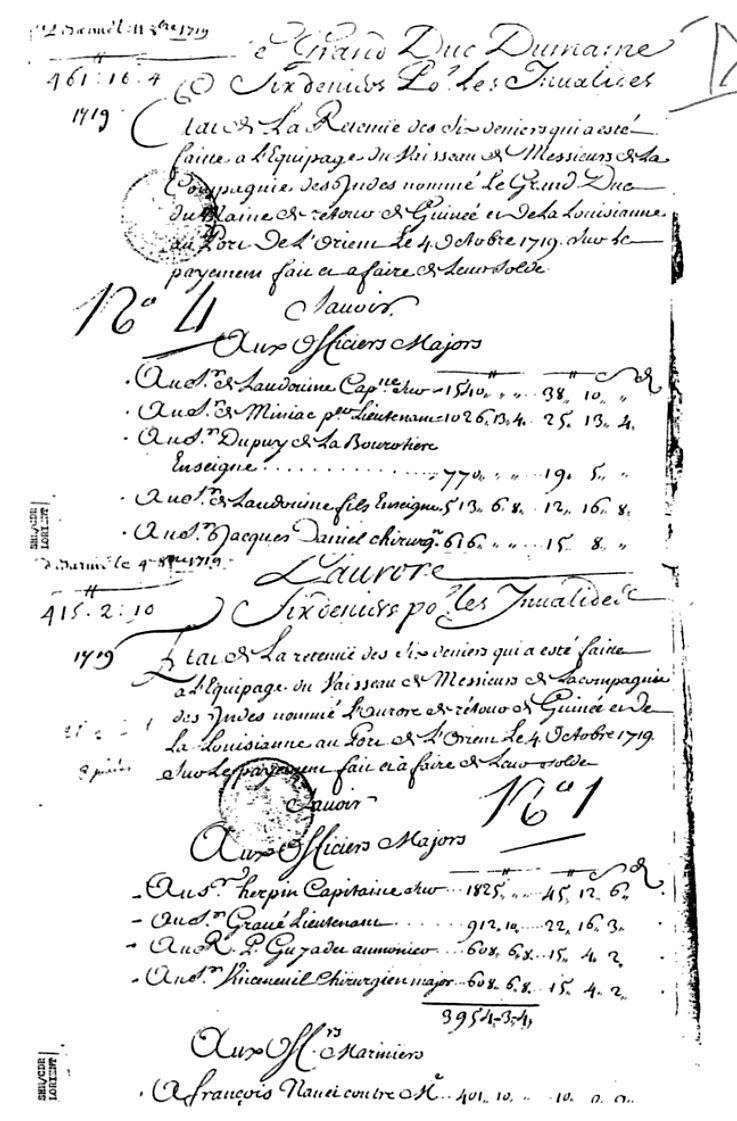 1719
Le Grand Duc Dumaine
461: 16. 4
Six deniers Po.r Les Inualides
1719
Etat de La Retenüe des Six deniers qui a esté
faitte a L'Equipage du Vaisseau de Messieurs de La
Compagnie des Indes nommé Le Grand Duc
du Maine de retour de Guinée et de La Louisianne
au Port De L'Orient Le 4 Octobre 1719. Sur Le
payement fait et a faire de Leur Solde
No 4
Sauoir
Aux Officiers Majors
Au S.r de Laudouine Cap.ne sur 1540,, ,, ,, 38,, 10,, ,,
Au S.r de Miniac p.er Lieutenant 1026,, 13,, 4,, 25,, 13,, 4,,
Au S.r Dupuy de La Bourotiere
Enseigne . . . . . . . . . . . 770,, ,, ,, 19,, 5,, ,,
Au S.r de Laudouine fils Enseigne 513,, 6,, 8,, 12,, 16,, 8,,
Au S.r Jacques Daniel chirurg.n 616,, ,, ,, 15,, 8,, ,,
SHM/CDR
LORIENT
desarmé le 4 8bre 1719
L'aurore
415. 2: 10
Six deniers po.r Les Inualides
1719
Etat de La retenüe des Six deniers qui a esté faitte
a L'Equipage du Vaisseau de Messieurs de La compagnie
des Indes nommé L'aurore de retour de Guinée et de
La Louisianne au Port de L'Orient Le 4. Octobre 1719.
Sur Le payement fait et a faire de Leur solde
Sauoir
No 1
Aux Officiers Majors
Au S.r herpin Capitaine sur 1825,, ,, ,, 45,, 12,, 6,,
Au S.r Graué Lieutenant . . . . . . 912,, 10,, 22,, 16,, 3,,
Au R. P. aumonier 608,, 6,, 8,, 15,, 4,, 2,,
Au S.r Chirurgien major 608,, 6,, 8,, 15,, 4,, 2,,
3954,, 3,, 4,,
Aux Off.rs Mariniers
A françois contre M.e 401,, 10,, ,, 10,,
SHM/CDR
LORIENT